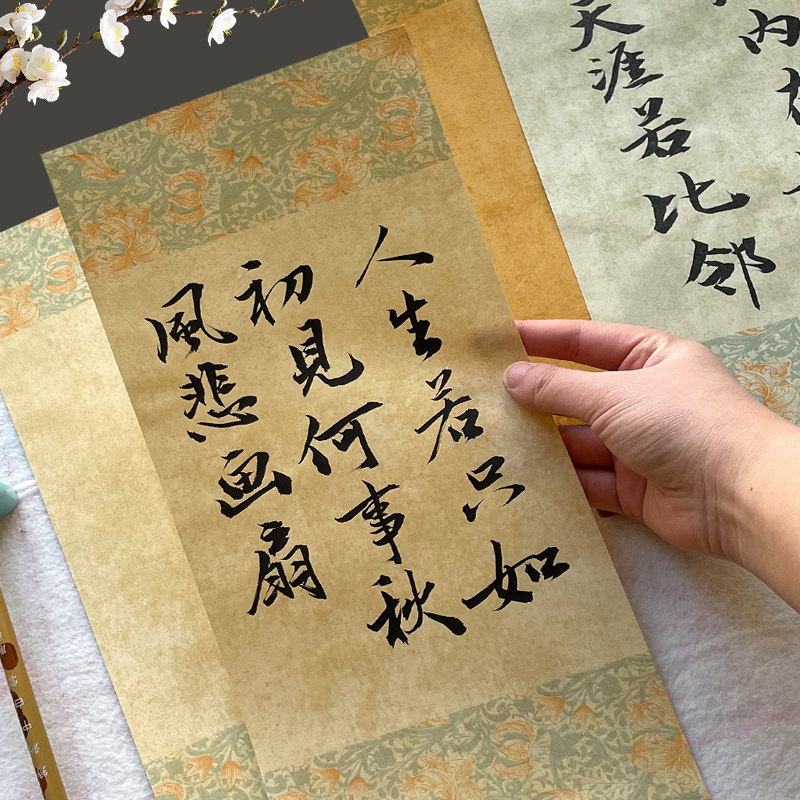 人生若只如
初見何事秋
風悲画扇
内
天涯若比邻